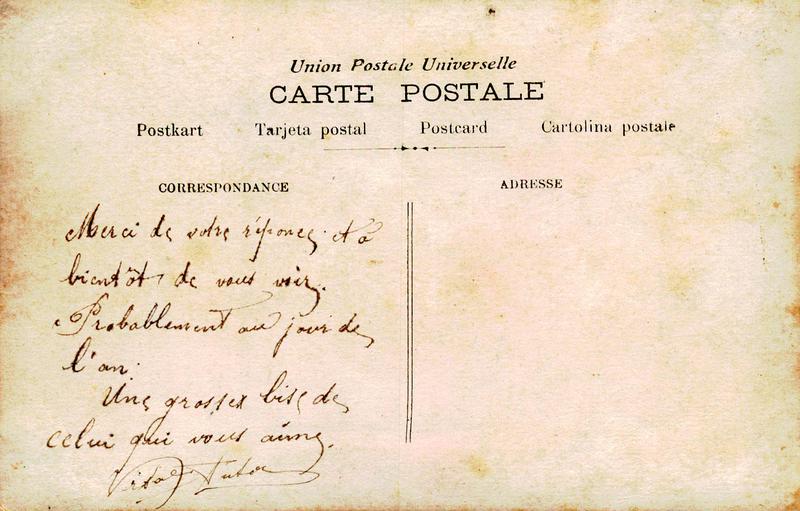 Union Postale Universelle
CARTE POSTALE
Postkart Tarjeta postal Postcard Cartolina postale
CORRESPONDANCE
ADRESSE
Merci de votre réponse et à
bientôt de vous voir.
Probablement au jour de
l'an.
Une grosse bise de
celui qui vous aime.